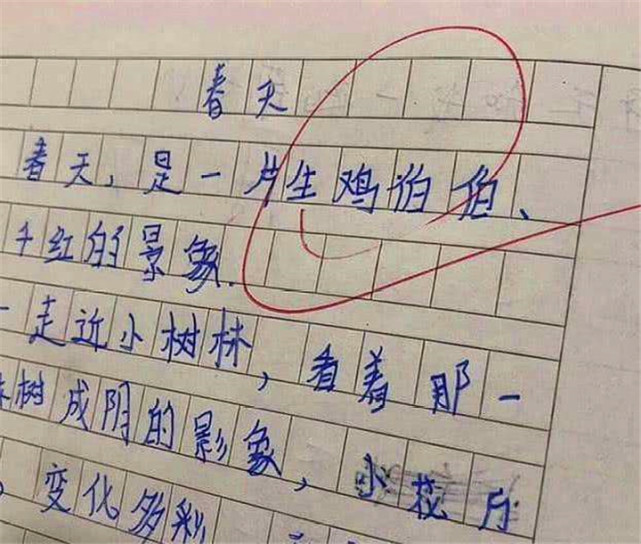 春天
春天,是一片生鸡泊伯、
千红的景象.
走近小树林,看着那一
树成阴的影象,小花
变化多彩